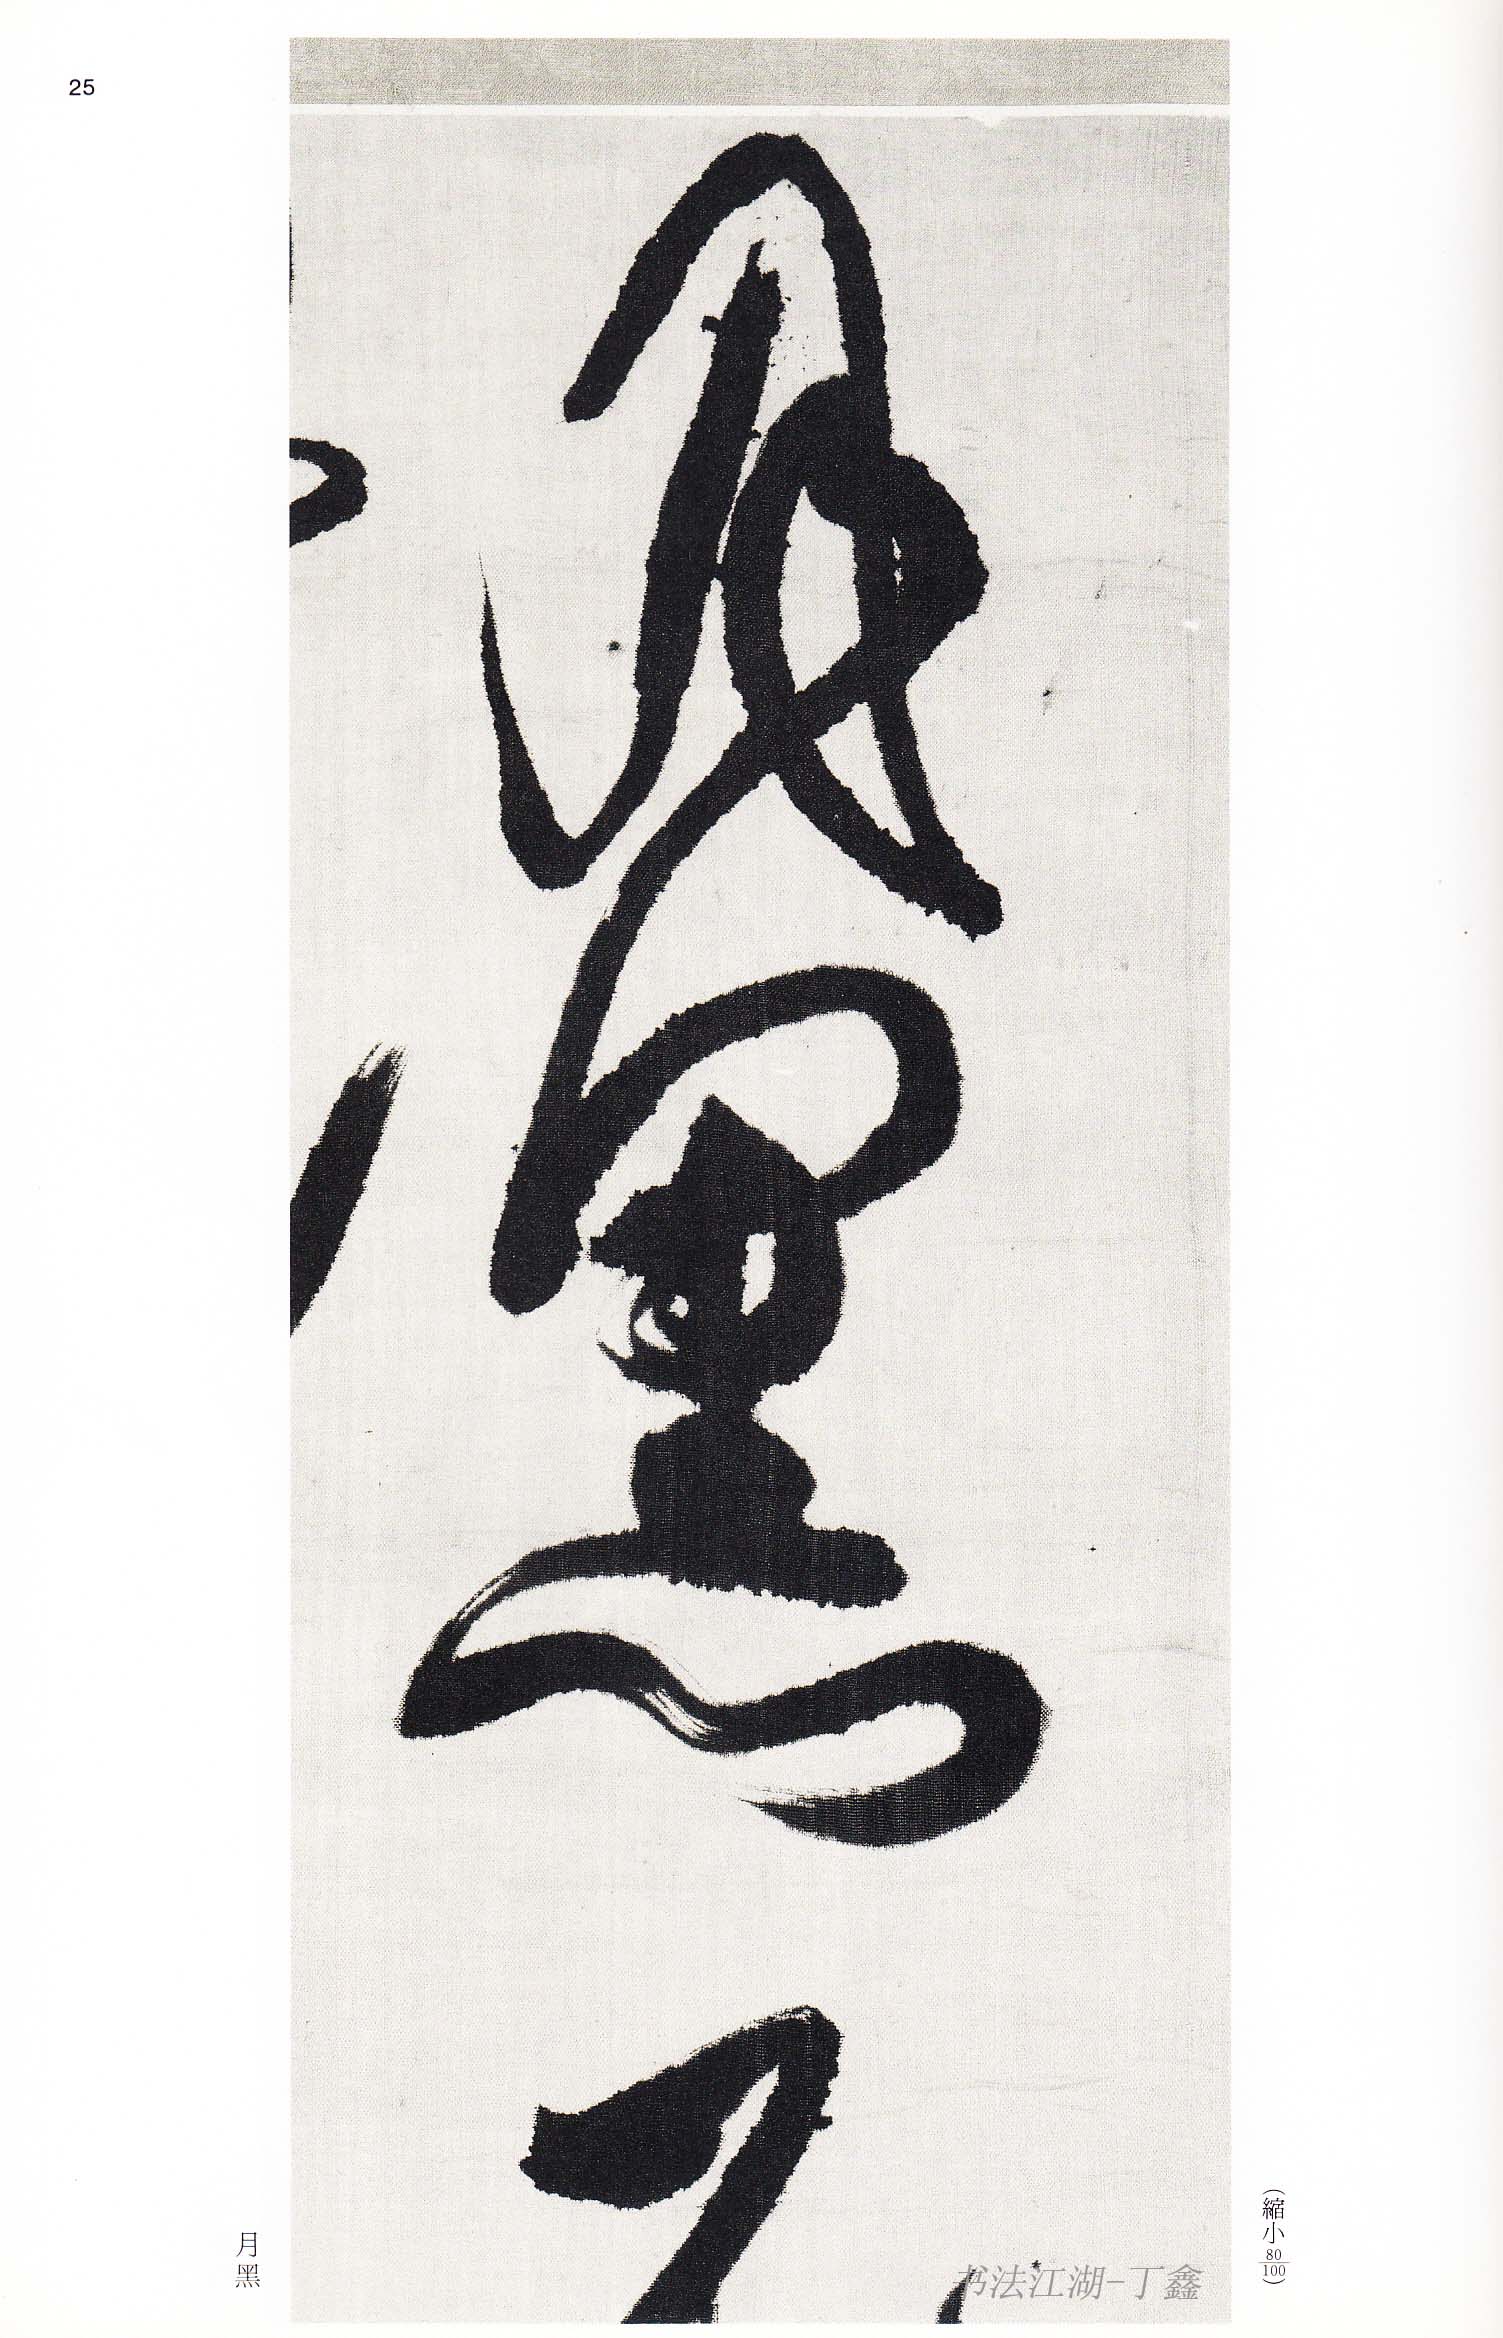 25
月黑
(縮小80/100)
书法江湖-丁鑫